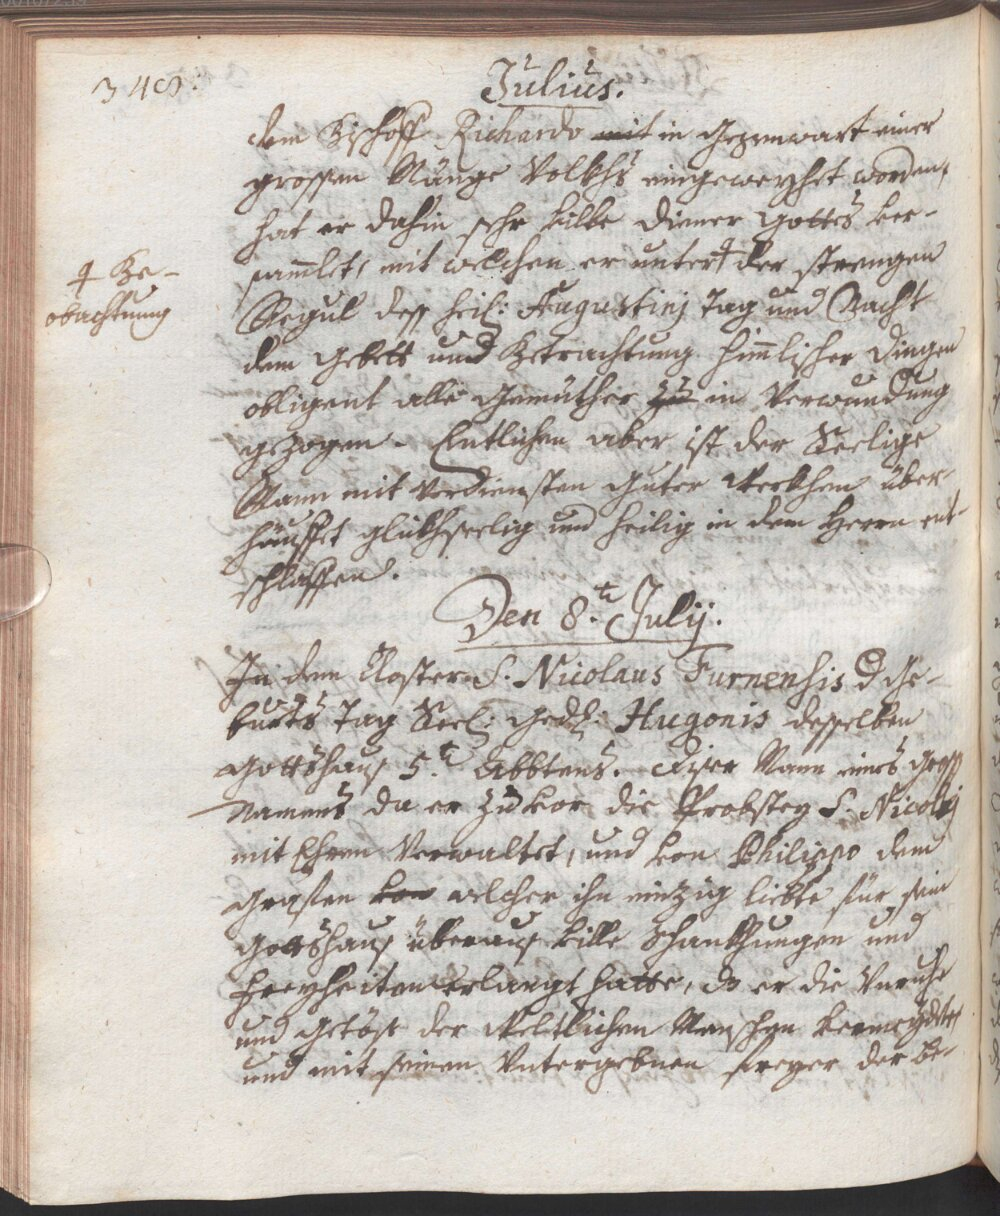 348.
Julius.
dem Bischoff Richardo mit in gegenwart einer
grossen Mänge Volkhs eingeweyhet worden,
hat er dahin sehr ville Diener Gottes ver-
sammlet, mit welchen er unter ꝉ der strengen
ꝉ Be-
obachtung
Regul dess heil: Augustinj Tag und Nacht
dem Gebett und Betrachtung himmlischer Dingen
obligent alle gemüther zu in Verwundung
gezogen. Entlichen aber ist der Seelige
Mann mit Verdiensten guter Werkhen über-
häuffet glükhseelig und heilig in dem Herrn ent-
schlaffen.
Den 8.te July.
In dem Closter S. Nicolaus Furnensis d Ge-
burts Tag Seel: Ged: Hugonis desselben
Gottshaus 5.t Abbtens. Diser Mann eines Gross
Namens da er zuvor die Probstey S. Nicolaj
mit Ehren Verwaltet, und von Philippo dem
Grafen von welcher ihn einzig liebte für sein
Gottshaus überaus ville Schankhungen und
Freyheiten erlangt hatte, do er die Unruhe
und getös der Weltlichen Menschen vermeydetet
und mit seinen Untergebnen freyer der Be-